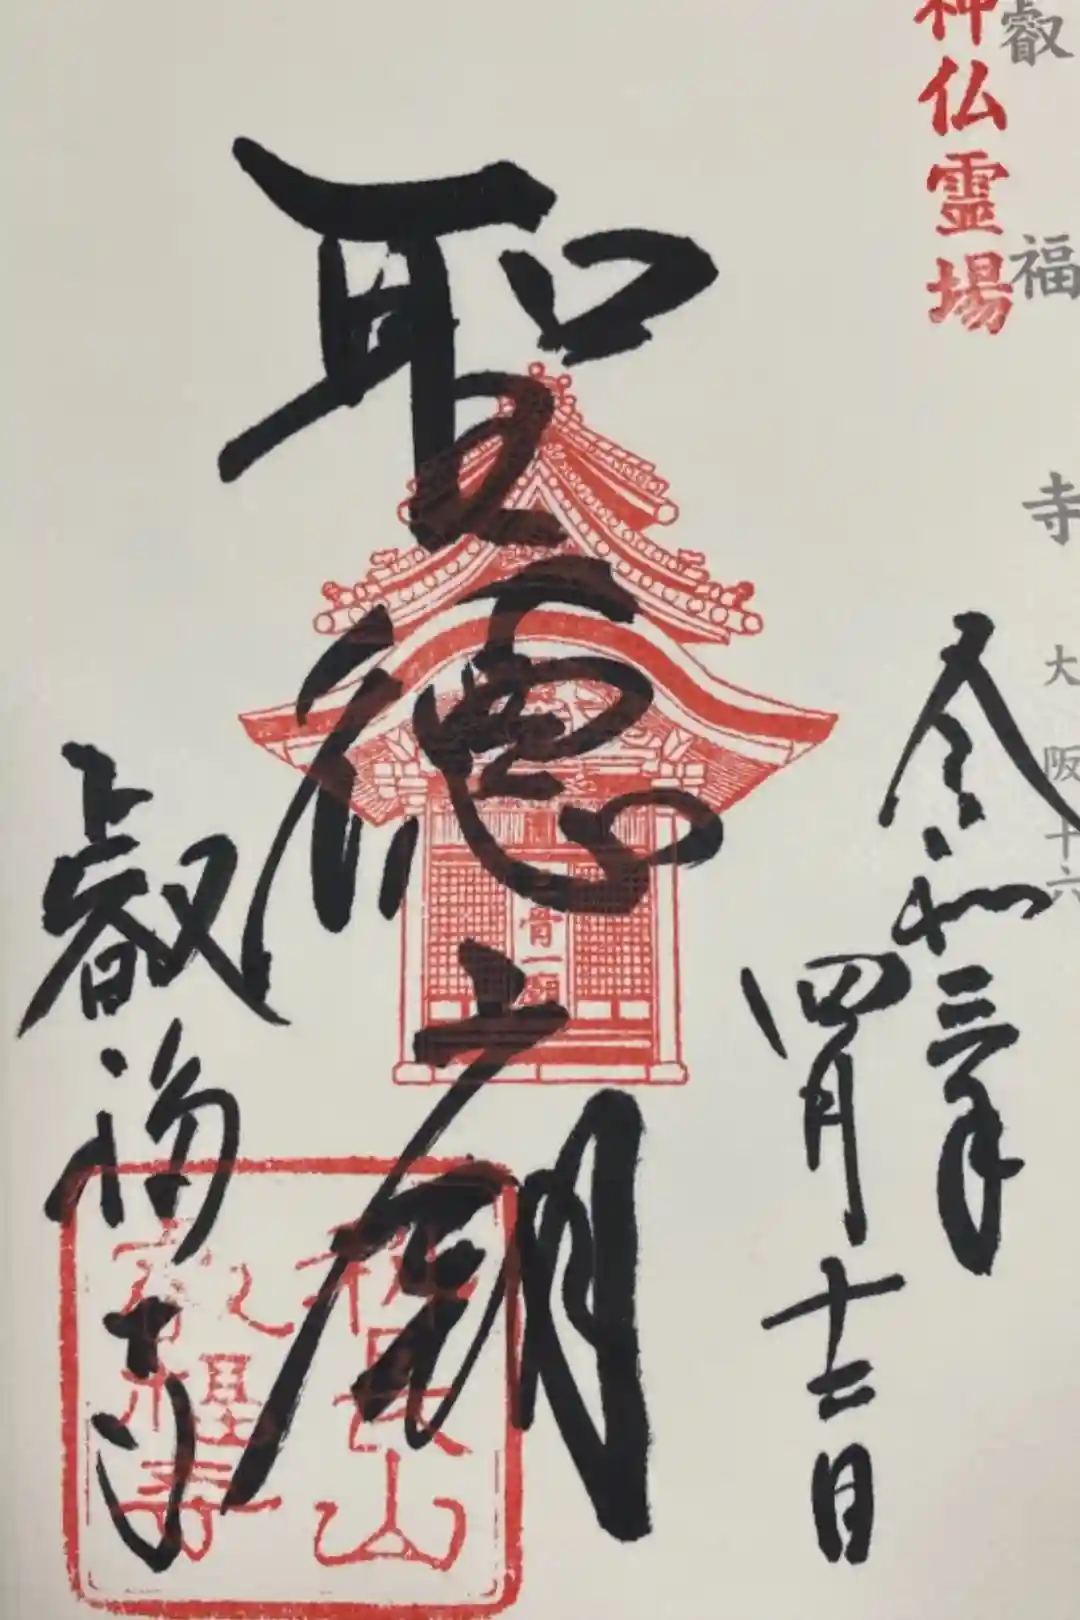 叡福寺 大阪十六
神仏霊場
令和三年
四月十二日
聖徳廟
三骨一廟
叡福寺
磯長山
叡福寺